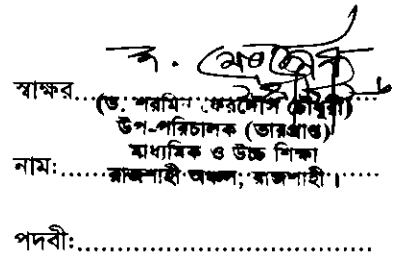 স্বাক্ষর..............................
(ড. শরমিন ফেরদৌস চৌধুরী)
উপ-পরিচালক (ভারপ্রাপ্ত)
মাধ্যমিক ও উচ্চ শিক্ষা
নামঃ..............................
রাজশাহী অঞ্চল, রাজশাহী।
পদবীঃ..............................